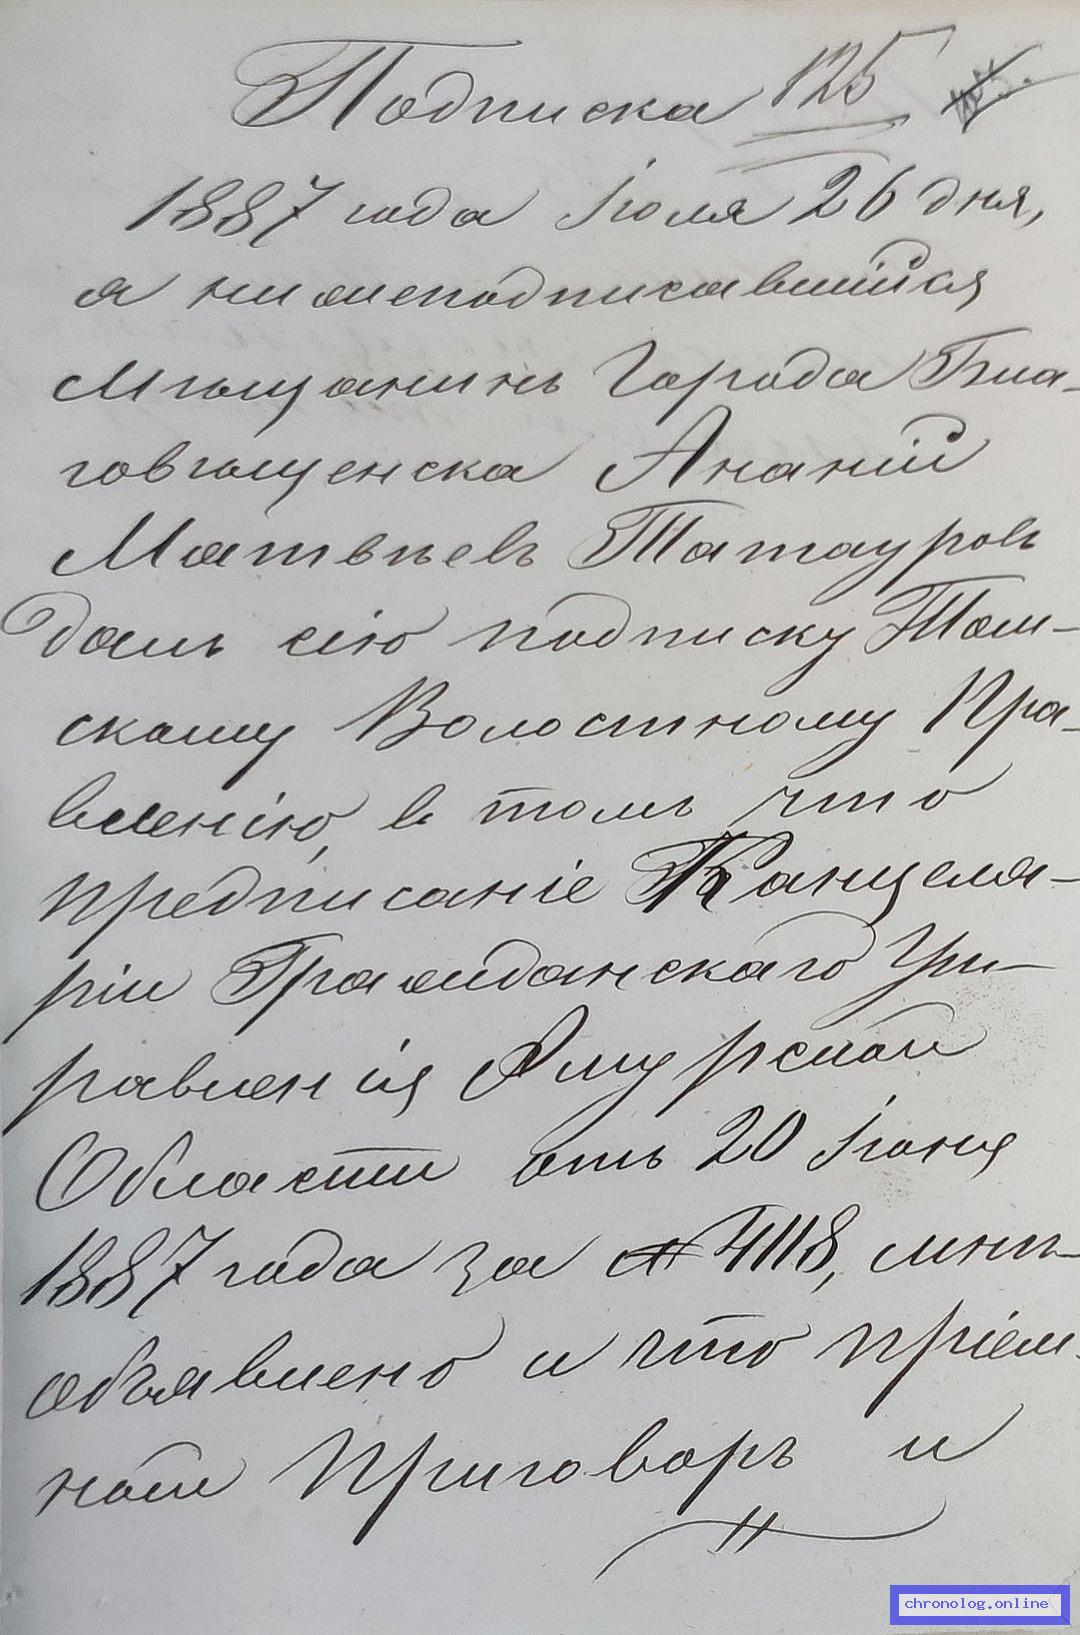 Подписка 125
1887 года Іюля 26 дня,
я нижеподписавшійся
Мѣщанинъ Города Бла-
говѣщенска Ананій
Матвѣевъ Татауровъ
далъ сію подписку Том-
скому Волостному Пра-
вленію, въ томъ что
предписаніе Канцеля-
ріи Гражданскаго Уп-
равленія Амурской
Области отъ 20 Іюня
1887 года за № 4118, мнѣ
объявлено и что пріем-
ной Приговоръ и
chronolog.online